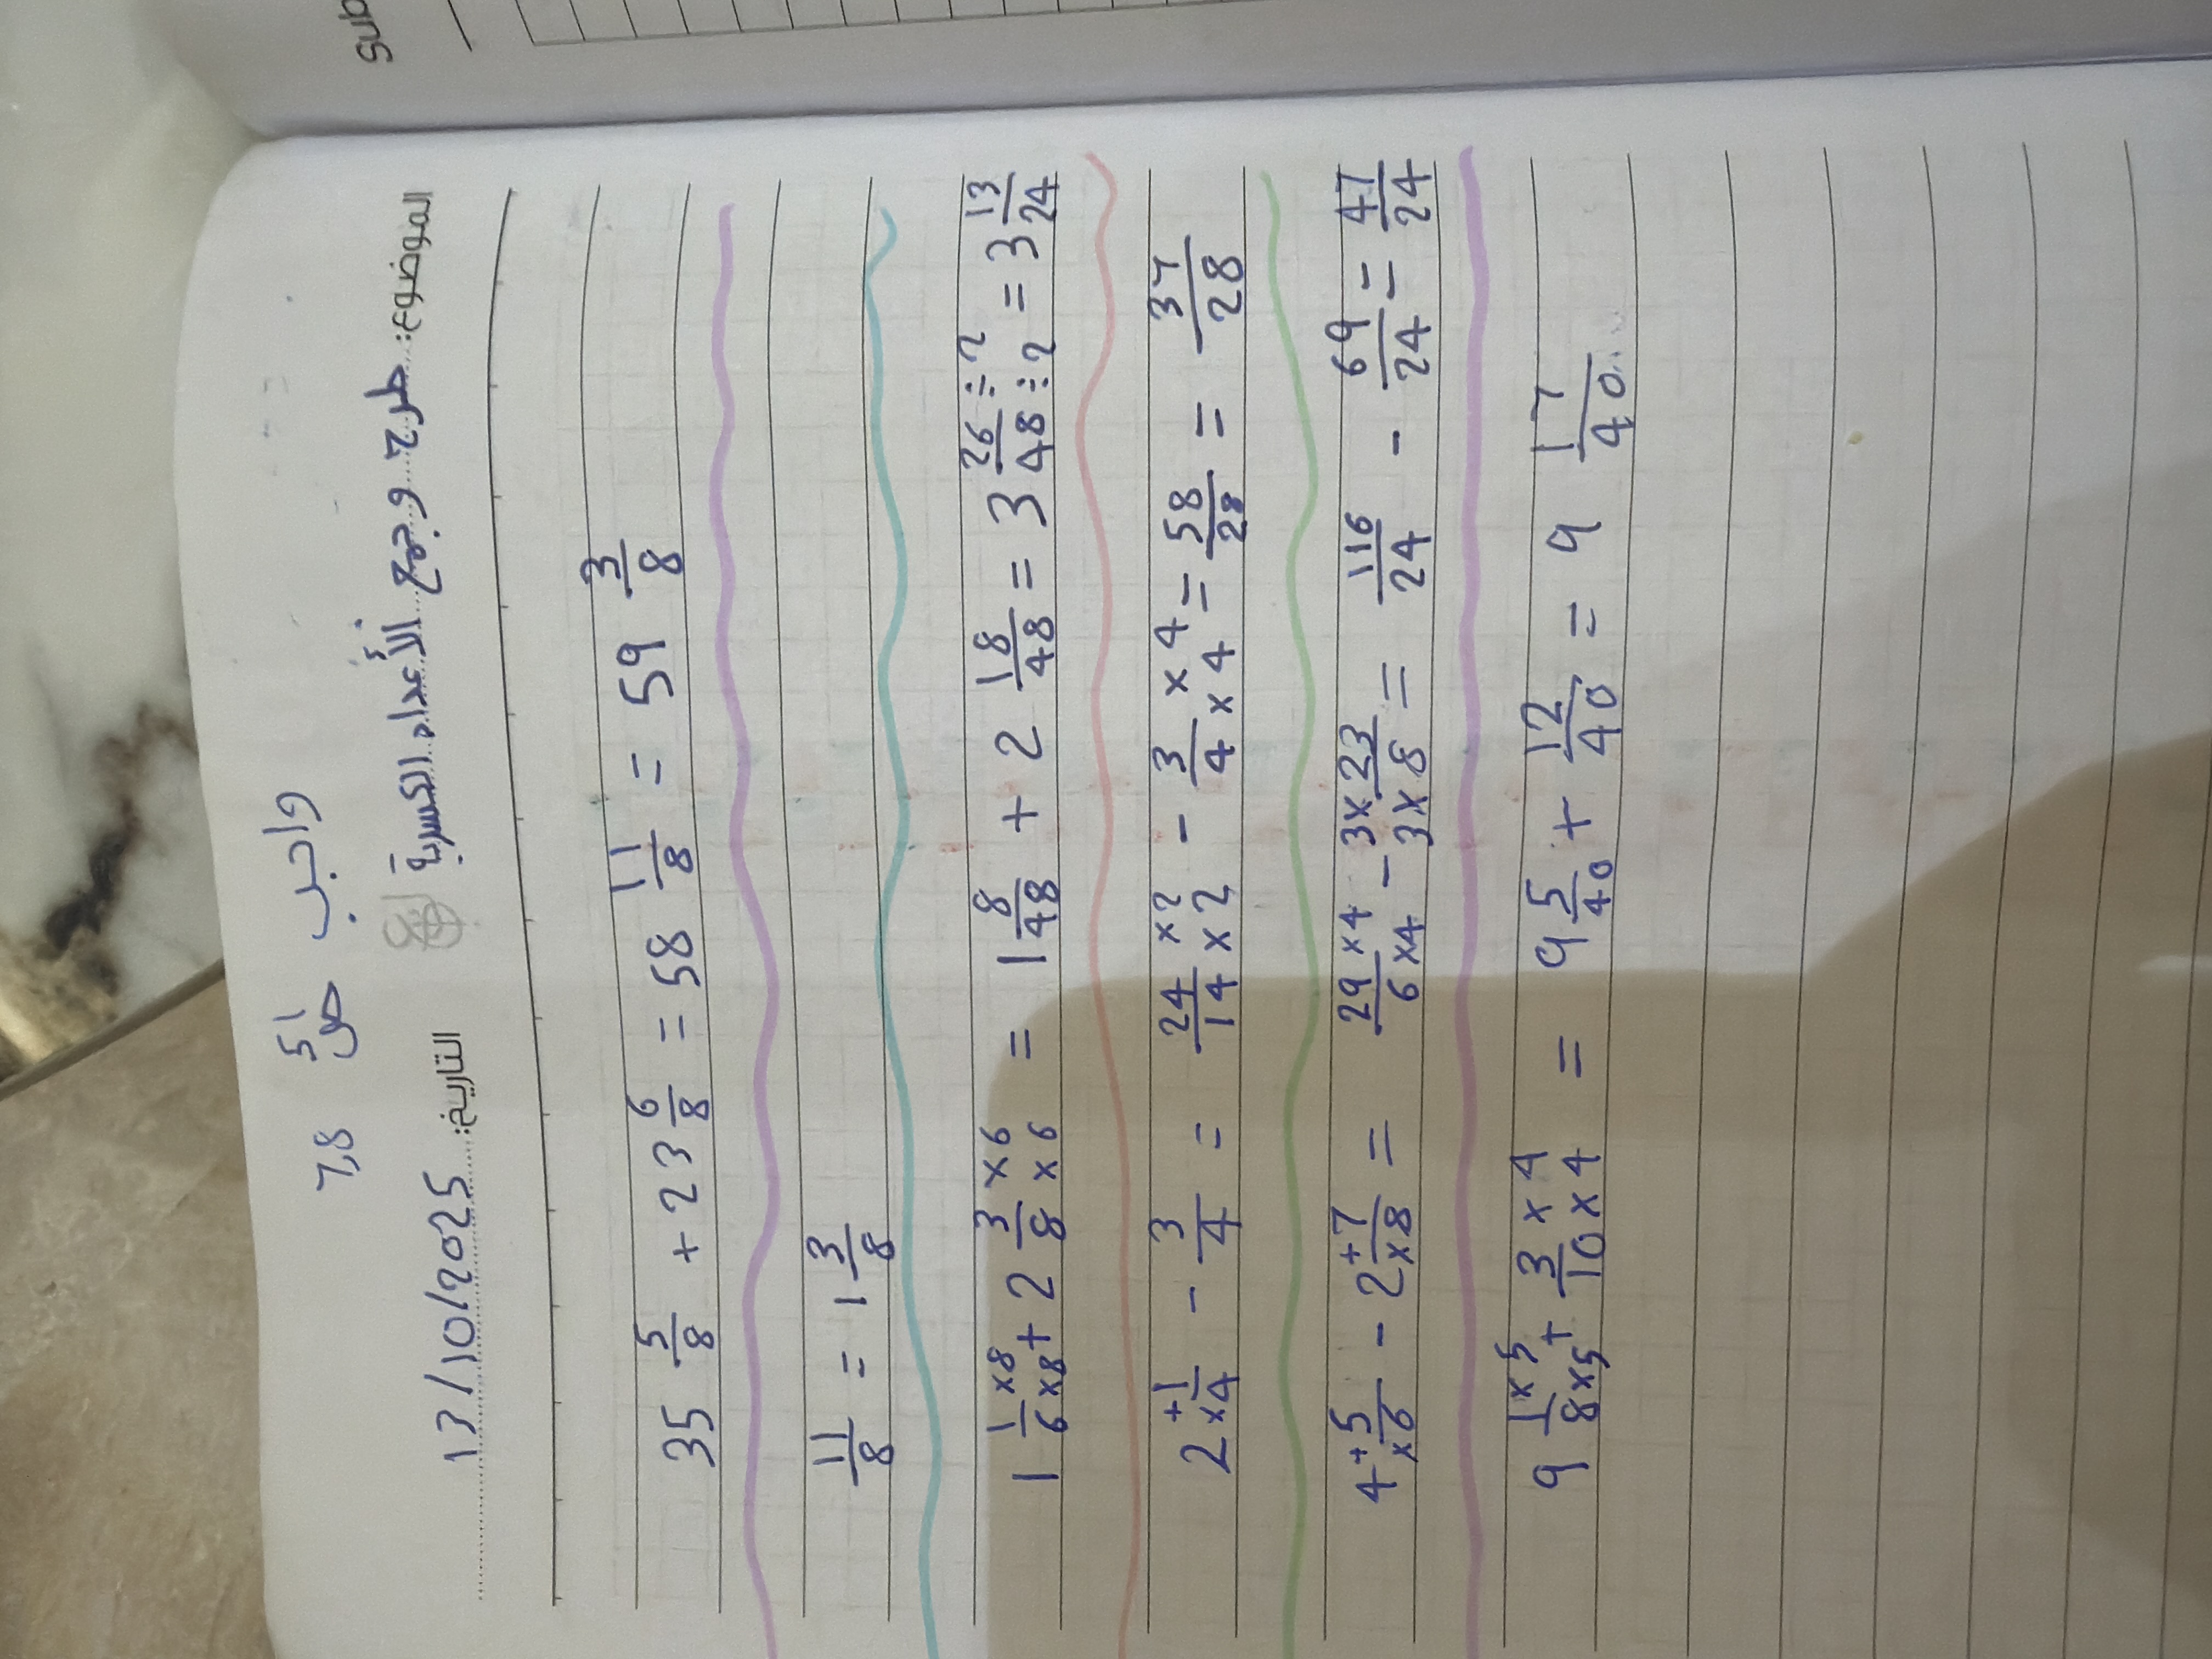 Sub
واجب ص 51 7,8
الموضوع: طرح و جمع الأعداد الكسرية التاريخ: 13/10/2025
35 5/8 + 23 6/8 = 58 11/8 = 59 3/8
11/8 = 1 3/8
1 1×8/6×8 + 2 3×6/8×6 = 1 8/48 + 2 18/48 = 3 26÷2/48÷2 = 3 13/24
2 +1/×4 - 3/4 = 24×2/14×2 - 3×4/4×4 = 58/28 = 37/28
4 +5/×6 - 2 +7/×8 = 29×4/6×4 - 3×23/3×8 = 116/24 - 69/24 = 47/24
9 1×5/8×5 + 3×4/10×4 = 9 5/40 + 12/40 = 9 17/40